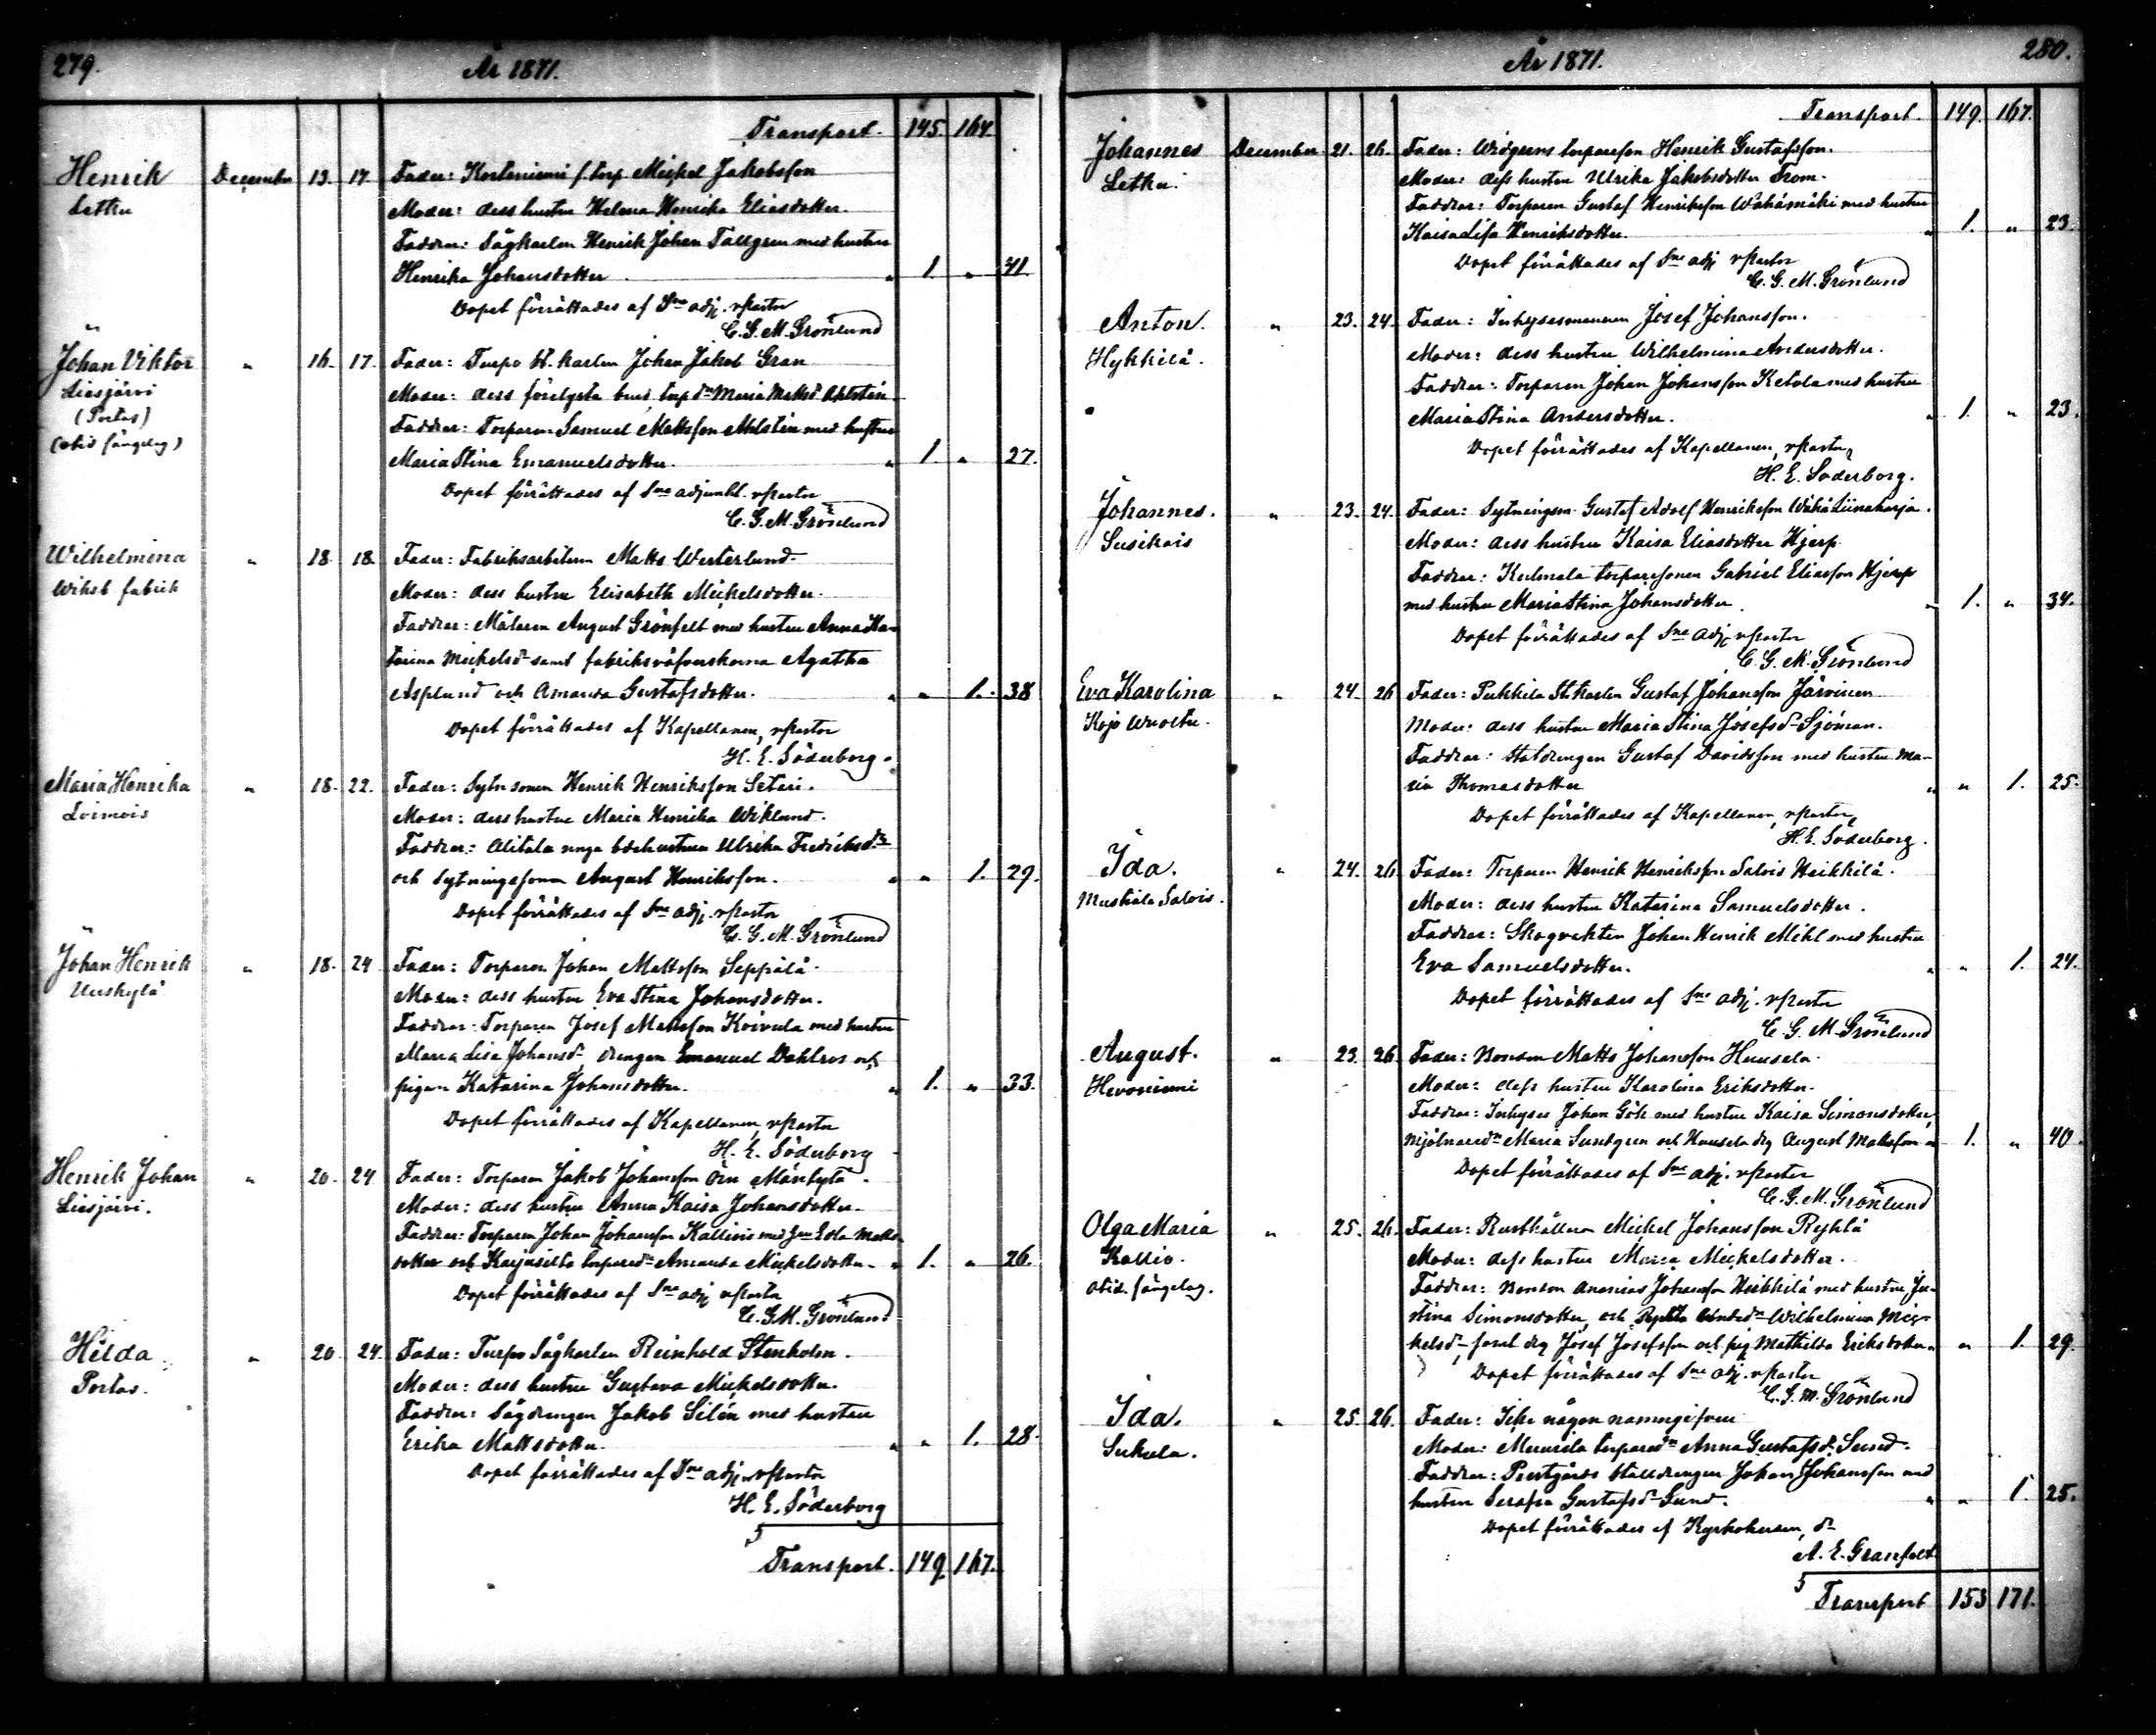 279.
År 1871.
Transport. 145. 164.
Henrik December 13. 17. Fader: Korteniemi f. torp. Michel Jakobsson
Letku Moder: dess hustru Helena Henrika Eliasdotter.
Faddrar: Sågkarlen Henrik Johan Tallgren med hustru
Henrika Johansdotter „ 1. „ 41.
Dopet förrättades af Sne adj. v pastor
C. G. M. Grönlund
Johan Viktor „ 16. 17. Fader: Turpo St. karlen Johan Jakob Gran
Liesjärvi Moder: dess förelysta brud, torp.dr Maria Mattsd. Ahlstén
(Portas) Faddrar: Torparen Samuel Mattsson Ahlstén med hustru
(obid fångelag)
Maria Stina Emanuelsdotter. „ 1. „ 27.
Dopet förrättades af Sne adjunkt. v pastor
C. G. M. Grönlund
Wilhelmina „ 18. 18. Fader: Fabriksarbetaren Matts Westerlund.
Wiksb. fabrik Moder: dess hustru Elisabeth Michelsdotter.
Faddrar: Målaren August Grönfelt med hustru Anna Ka-
tarina Michelsdr samt fabriksväfverskorna Agatha
Asplund och Amanda Gustafsdotter. „ „ 1. 38
Dopet förrättades af Kapellanen, v pastor
H. E. Söderborg.
Maria Henrika „ 18. 22. Fader: Sytn sonen Henrik Henriksson Setäri.
Loimois Moder: dess hustru Maria Henrika Wiklund.
Faddrar: Alitalo unga bdehustrun Ulrika Fredriksdr
och Sytningssonen August Henriksson. „ „ 1. 29.
Dopet förrättades af Sne adj. v pastor
C. G. M. Grönlund
Johan Henrik „ 18. 24 Fader: Torparen Johan Mattsson Seppälä.
Uuskylä Moder: dess hustru Eva Stina Johansdotter.
Faddrar: Torparen Josef Mattsson Koivula med hustru
Maria Lisa Johansdr, drengen Emanuel Dahlros och
pigan Katarina Johansdotter. „ 1. „ 33.
Dopet förrättades af Kapellanen, v pastor
H. E. Söderborg
Henrik Johan „ 20. 24 Fader: Torparen Jakob Johansson Örn Mäntylä.
Liesjärvi. Moder: dess hustru Anna Kaisa Johansdotter.
Faddrar: Torparen Johan Johansson Kallinis med Edla Matts-
dotter och Karjusilta torparedr Amanda Michelsdotter. „ 1. „ 26.
Dopet förrättades af Sne adj. v pastor
C. G. M. Grönlund
Hilda „ 20. 24. Fader: Turpo Sågkarlen Reinhold Stenholm.
Portas. Moder: dess hustru Gustava Michelsdotter.
Faddrar: Sågdrengen Jakob Silén med hustru
Erika Mattsdotter. „ „ 1. 28.
Dopet förrättades af Sne adj. v pastor
H. E. Söderborg
Transport. 149. 167.
År 1871.
280.
Transport. 149. 167.
Johannes December 21. 26. Fader: Widgrens torpareson Henrik Gustafsson.
Letku. Moder: dess hustru Ulrika Jakobsdotter From.
Faddrar: Torparen Gustaf Henriksson Wähämäki med hustru
Kaisa Lisa Henriksdotter. „ 1. „ 23.
Dopet förrättades af Sne adj v pastor
C. G. M. Grönlund
Anton. „ 23. 24. Fader: Inhysesmannen Josef Johansson.
Hykkilä. Moder: dess hustru Wilhelmina Andersdotter.
Faddrar: Torparen Johan Johansson Ketola med hustru
Maria Stina Andersdotter. „ 1. „ 23.
Dopet förrättades af Kapellanen, v pastor,
H. E. Söderborg.
Johannes. „ 23. 24. Fader: Sytningsm. Gustaf Adolf Henriksson Wähä Liinaharja.
Susikais Moder: dess hustru Kaisa Eliasdotter Hjerp.
Faddrar: Kulmala torparesonen Gabriel Eliasson Hjerp
med hustru Maria Stina Johansdotter. „ 1. „ 34.
Dopet förrättades af Sne adj. v pastor
C. G. M. Grönlund
Eva Karolina „ 24. 26 Fader: Pukkila St. karlen Gustaf Johansson Järvinen
Kojo Moder: dess hustru Maria Stina Josefsdr Sjöman.
Faddrar: Statdrengen Gustaf Davidsson med hustru Ma-
ria Thomasdotter „ „ 1. 25.
Dopet förrättades af Kapellanen, v pastor,
H. E. Söderborg.
Ida. „ 24. 26 Fader: Torparen Henrik Henriksson Salois Heikkilä.
Mustiala Salois. Moder: dess hustru Katarina Samuelsdotter.
Faddrar: Skogvakten Johan Henrik Mihl med hustru
Eva Samuelsdotter. „ „ 1. 24.
Dopet förrättades af Sne adj. v pastor
C. G. M. Grönlund
August. „ 25. 26. Fader: Bonden Matts Johansson Huusela.
Hevoniemi Moder: dess hustru Karolina Eriksdotter.
Faddrar: Inhyses Johan Gök med hustru Kaisa Simonsdotter,
mjölnaredr Maria Sundgren och Huusela drg August Mattsson „ 1. „ 40.
Dopet förrättades af Sne adj. v pastor
C. G. M. Grönlund
Olga Maria „ 25. 26. Fader: Rusthållaren Michel Johansson Ryhtä
Kallio. Moder: dess hustru Maria Michelsdotter.
obid. fångelag. Faddrar: Bonden Ananias Johansson Heikkilä med hustru Ju-
stina Simonsdotter, och Ryhtä bondedr Wilhelmina Mic-
kelsdr, samt drg Josef Josefsson och pig Mathilda Eriksdotter „ „ 1. 29.
Dopet förrättades af Sne adj. v pastor
C. G. M. Grönlund
Ida. „ 25. 26. Fader: Icke någon namngifven
Sukula. Moder: Muurila torparedr Anna Gustafsdr Sund.
Faddrar: Prestgårds stalldrengen Johan Johansson med
hustru Serafia Gustafsdr Sund. „ „ 1. 25.
Dopet förrättades af Kyrkoherden, dr
A. E. Granfelt
Transport 153 171.